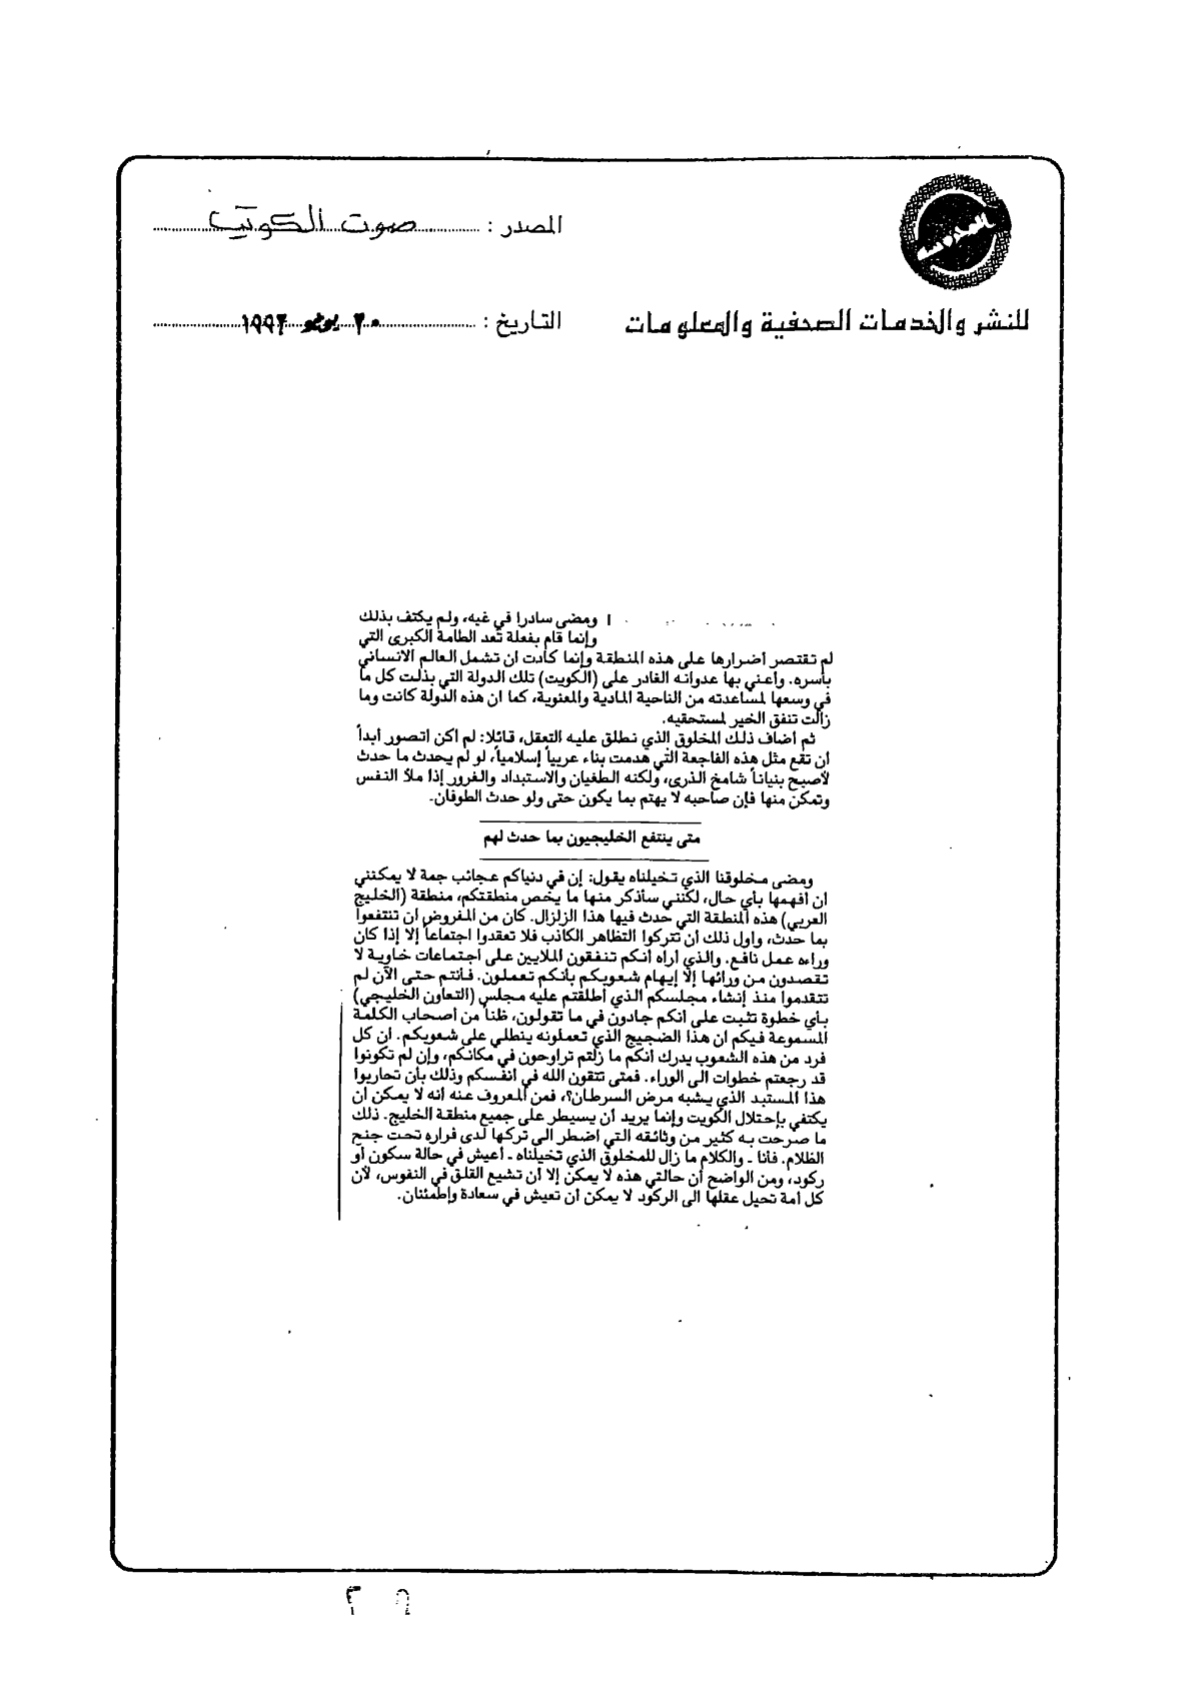 المصدر : صوت الكويت
للنشر والخدمات الصحفية والمعلومات
التاريخ : ٢٠ يونيو ١٩٩٢
ومضى سادرا في غيه، ولم يكتف بذلك
وإنما قام بفعلة تعد الطامة الكبرى التي
لم تقتصر أضرارها على هذه المنطقة وإنما كادت ان تشمل العالم الانساني
بأسره. واعني بها عدوانه الغادر على (الكويت) تلك الدولة التي بذلت كل ما
في وسعها لمساعدته من الناحية المادية والمعنوية، كما ان هذه الدولة كانت وما
زالت تنفق الخير لمستحقيه.
ثم أضاف ذلك المخلوق الذي نطلق عليه التعقل، قائلا: لم اكن اتصور أبدأ
ان تقع مثل هذه الفاجعة التي هدمت بناء عربياً إسلامياً، لو لم يحدث ما حدث
لأصبح بنياناً شامخ الذرى، ولكنه الطغيان والاستبداد والغرور إذا ملأ النفس
وتمكن منها فإن صاحبه لا يهتم بما يكون حتى ولو حدث الطوفان.
متى ينتفع الخليجيون بما حدث لهم
ومضى مخلوقنا الذي تخيلناه يقول: إن في دنياكم عجائب جمة لا يمكنني
ان أفهمها بأي حال، لكنني سأذكر منها ما يخص منطقتكم، منطقة (الخليج
العربي) هذه المنطقة التي حدث فيها هذا الزلزال. كان من المفروض ان تنتفعوا
بما حدث، واول ذلك ان تتركوا التظاهر الكاذب فلا تعقدوا اجتماعاً إلا إذا كان
وراءه عمل نافع. والذي اراه انكم تنفقون الملايين على اجتماعات خاوية لا
تقصدون من ورائها إلا إيهام شعوبكم بأنكم تعملون. فأنتم حتى الآن لم
تتقدموا منذ إنشاء مجلسكم الذي أطلقتم عليه مجلس (التعاون الخليجي)
بأي خطوة تثبت على انكم جادون في ما تقولون، ظناً من أصحاب الكلمة
المسموعة فيكم ان هذا الضجيج الذي تعملونه ينطلي على شعوبكم. ان كل
فرد من هذه الشعوب يدرك أنكم ما زلتم تراوحون في مكانكم، وإن لم تكونوا
قد رجعتم خطوات الى الوراء. فمتى تتقون الله في انفسكم وذلك بأن تحاربوا
هذا المستبد الذي يشبه مرض السرطان؟، فمن المعروف عنه انه لا يمكن ان
يكتفي بإحتلال الكويت وإنما يريد أن يسيطر على جميع منطقة الخليج. ذلك
ما صرحت به كثير من وثائقه التي اضطر الى تركها لدى فراره تحت جنح
الظلام. فأنا ـ والكلام ما زال للمخلوق الذي تخيلناه ـ أعيش في حالة سكون أو
ركود، ومن الواضح أن حالتي هذه لا يمكن إلا أن تشيع القلق في النفوس، لأن
كل أمة تحيل عقلها الى الركود لا يمكن أن تعيش في سعادة وإطمئنان.